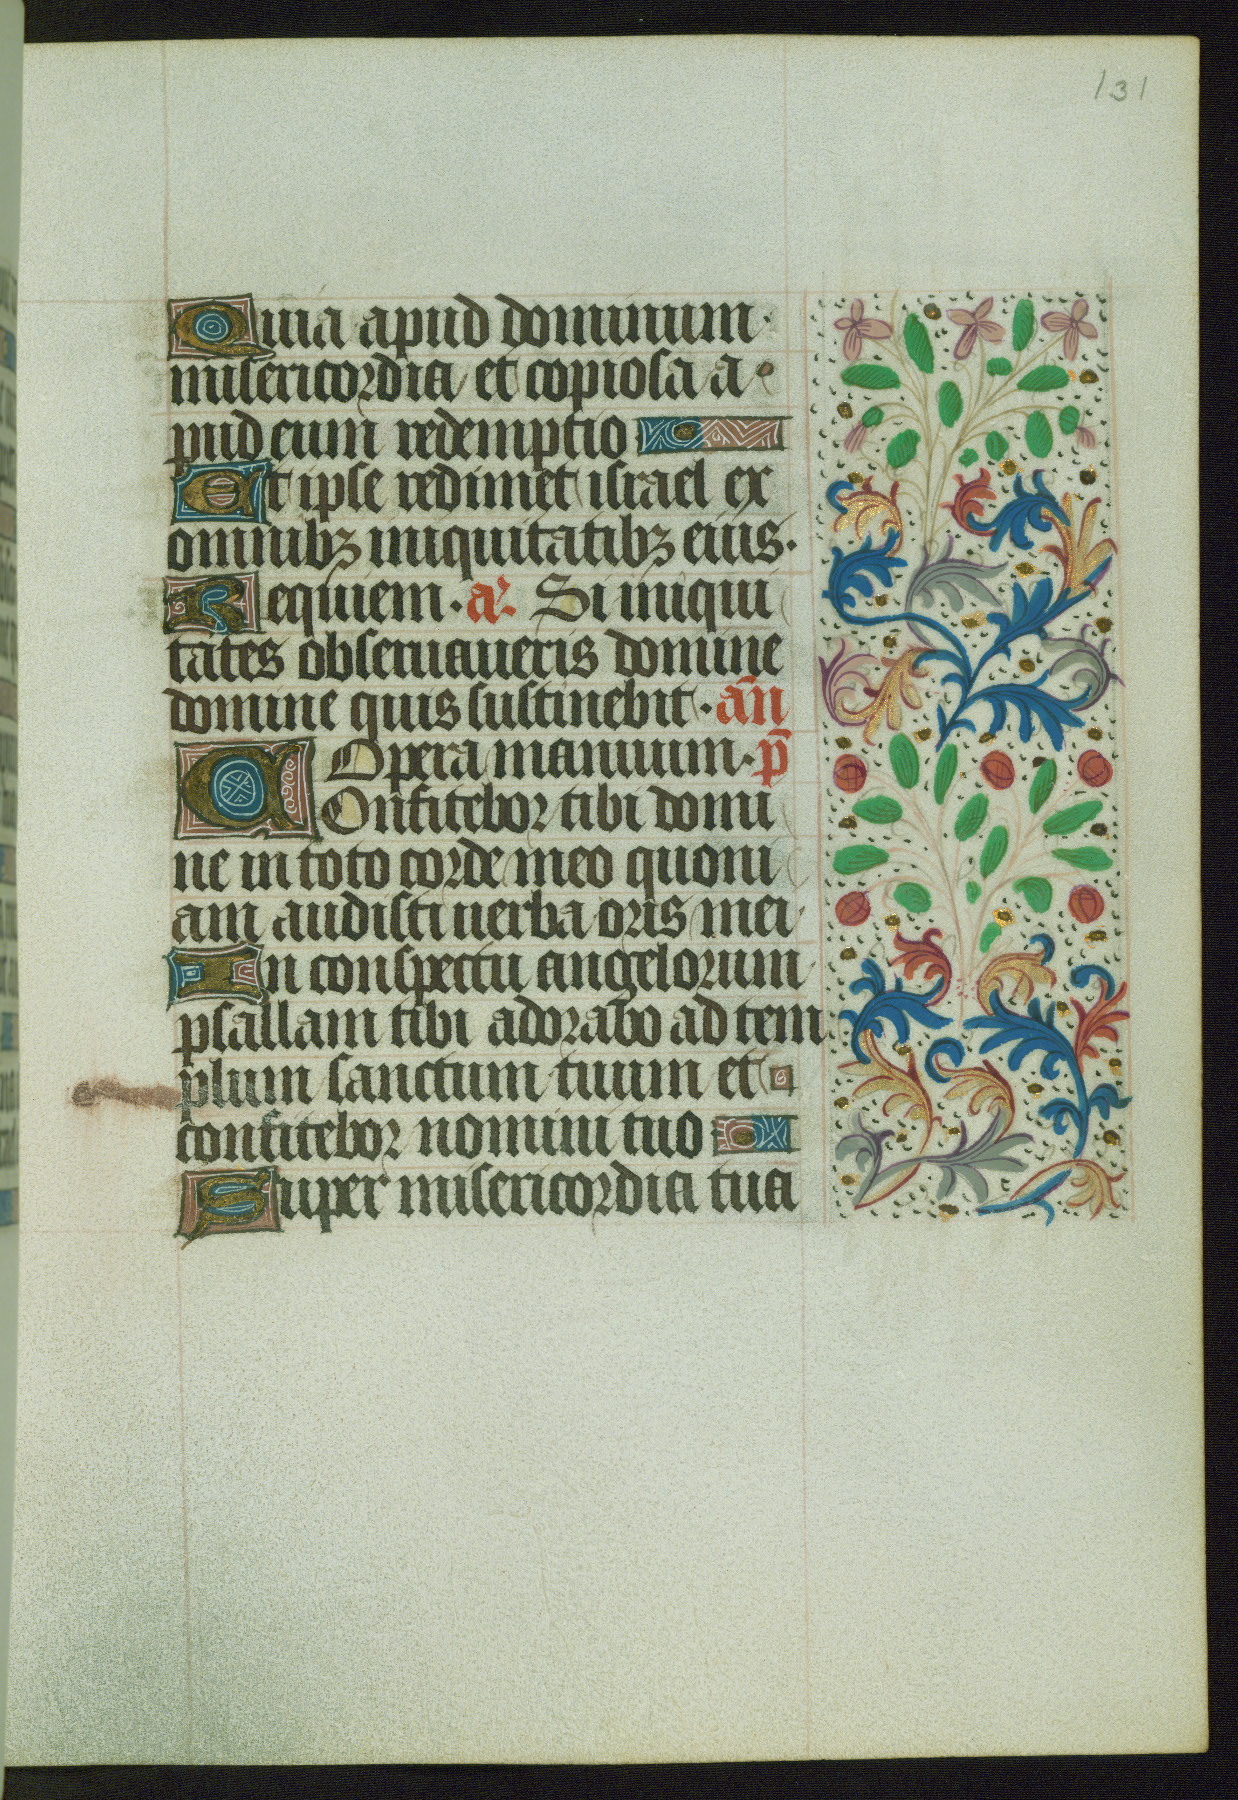 131
Quia apud dominum·
misericordia et copiosa a·
pud eum redemptio
Et ipse redimet israel ex
omnibꝫ iniquitatibꝫ eius·
Requiem· a᷒. Si iniqui
tates obseruaueris domine
domine quis sustinebit· an̄
Opera manuum· p̄
Confitebor tibi domi
ne in toto corde meo quoni
am audisti uerba oris mei·
In conspectu angelorum·
psallam tibi adorabo ad tem
plum sanctum tuum et
confitebor nomini tuo
Super misericordia tua